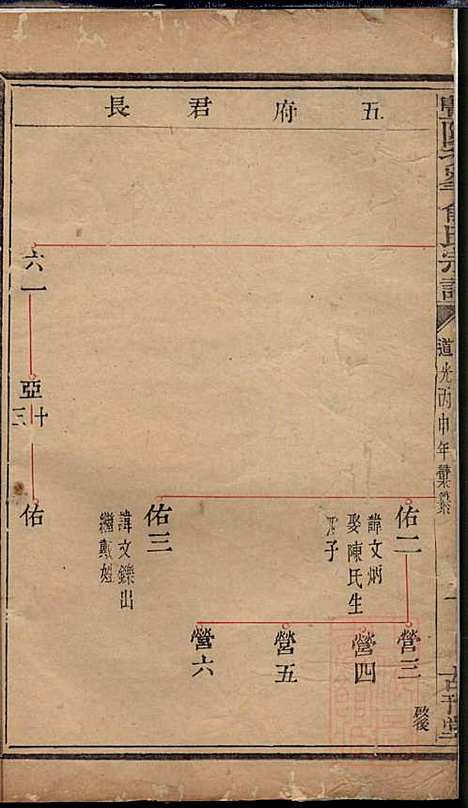 五府君長
俞氏宗譜
道光丙申年彙纂
佑二
諱文炳
娶陳氏生
四子
營三
啟後
營四
營五
營六
佑三
諱文鑠出
繼戴姓
六一
亞十三
佑